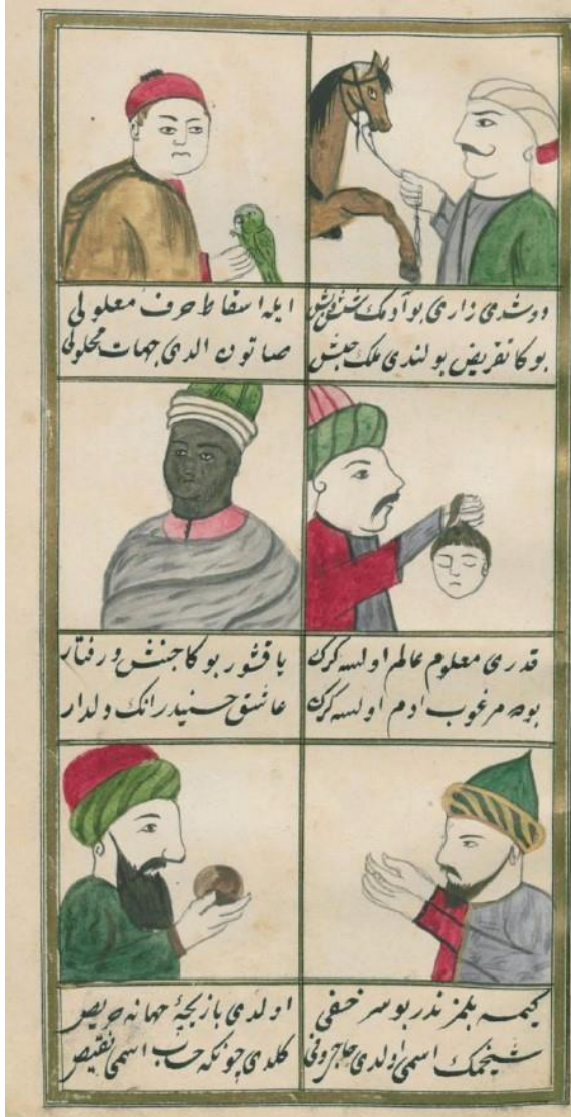 دوشدی زاری بو آدمك شش بش
بوكا تفریض بولندی ملك حبش
ایله اسقاط حرف معلولی
صاتون الدی جهات محلولی
قدری معلوم عالم اولسه كرك
مرغوب ادم اولسه كرك
یاقشور بوكا جنبش و رفتار
عاشق حسنیدر انك دلدار
كیمسه بلمز ندر بو سر خفی
شیخمك اسمی اولدی
اولدی بازیچهٔ جهانه حریص
كلدی چونكه حساب اسمی نقیص